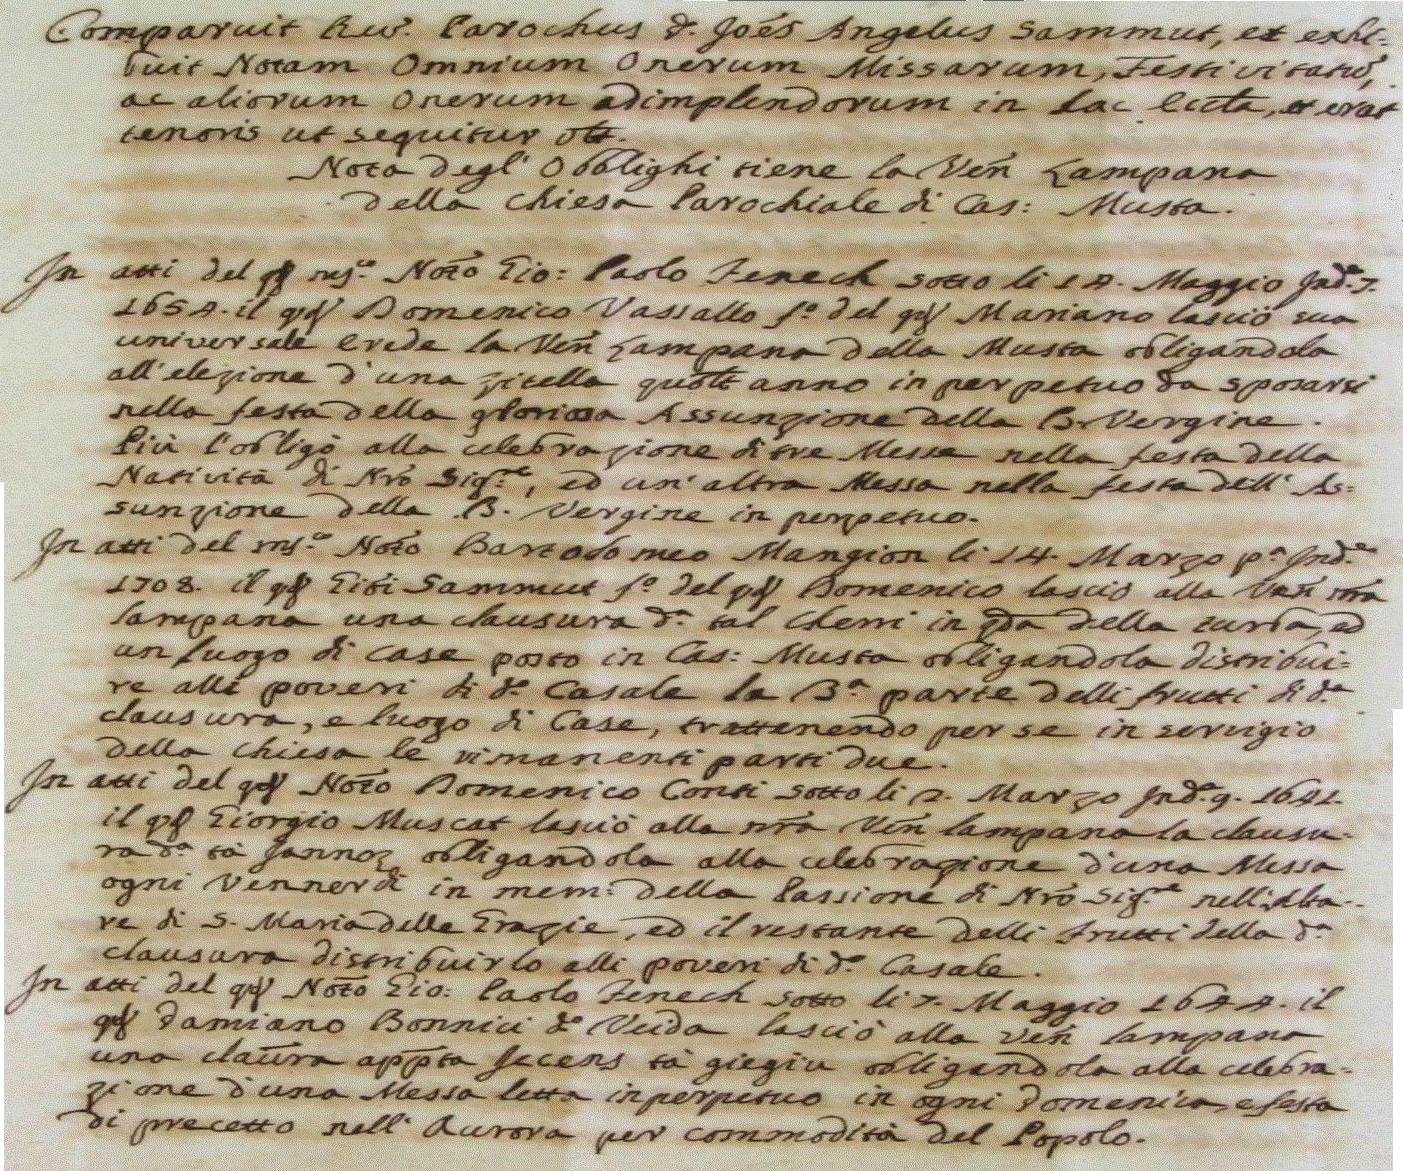 Comparuit Rev. Parochus D. Joēs Angelus Sammut, et exhi=
buit Notam Omnium Onerum Missarum, Festivitatū,
ac aliorum Onerum adimplendorum in hac Eccla, et erat
tenoris ut sequitur
Nota degl' Obblighi tiene la Ven̄ Lampana
della Chiesa Parochiale di Cas: Musta.
In atti del qq̄ mg.co Noto Gio: Paolo Fenech sotto li 14. Maggio Ind.e 7.
1654. il qq̄ Domenico Vassallo f.o del qq̄ Mariano lasciò sua
universale erede la Ven̄ Lampana della Musta obligandola
all'elezione d'una zitella quolt anno in perpetuo da sposarsi
nella festa della gloriosa Assunzione della B. Vergine.
Più l'obligò alla celebrazione di tre Messe nella festa della
Natività di Nrō Sig.re, ed un'altra Messa nella festa dell'As=
sunzione della B. Vergine in perpetuo.
In atti del mg.co Noto Bartolomeo Mangion li 14. Marzo p.a Ind.e
1708. il qq̄ Gioi Sammut f.o del qq̄ Domenico lasciò alla Ven̄ nrā
lampana una clausura d.a tal Cherri in qda della curba, ed
un luogo di case posto in Cas: Musta obligandola distribui=
re alli poveri di d.o Casale la 3.a parte delli frutti di d.a
clausura, e luogo di Case, trattenendo per se in servigio
della chiesa le rimanenti parti due.
In atti del qq̄ Noto Domenico Conti sotto li 2. Marzo Ind.e 9. 1641.
il qq̄ Giorgio Muscat lasciò alla nrā Ven̄ lampana la clausu-
ra d.a ta Jannoz obligandola alla celebrazione d'una Messa
ogni Vennerdi in mem: della Passione di Nrō Sig.re nell'Alta-
re di S. Maria delle Grazie, ed il restante delli frutti della d.a
clausura distribuirlo alli poveri di d.o Casale.
In atti del qq̄ Noto Gio: Paolo Fenech sotto li 7. Maggio 1644. il
qq̄ Damiano Bonnici de Veida lasciò alla Ven̄ lampana
una claūra app̄ta Jecens ta giegiu obligandola alla celebra-
zione d'una Messa letta in perpetuo in ogni Domenica, e festa
di precetto nell'Aurora per commodità del Popolo.